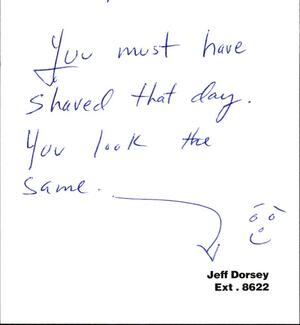 You must have
shaved that day.
You look the
same.
Jeff Dorsey
Ext . 8622